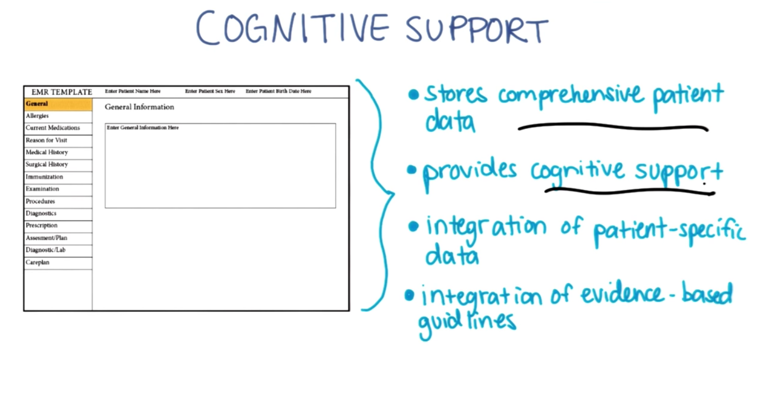 COGNITIVE SUPPORT
EMR TEMPLATE
Enter Patient Name Here
Enter Patient Sex Here
Enter Patient Birth Date Here
General
Allergies
Current Medications
Reason for Visit
Medical History
Surgical History
Immunization
Examination
Procedures
Diagnostics
Prescription
Assessment/Plan
Diagnostic/Lab
Careplan
General Information
Enter General Information Here
• Stores comprehensive patient
data
• provides cognitive support
• integration of patient-specific
data
• integration of evidence-based
guidlines